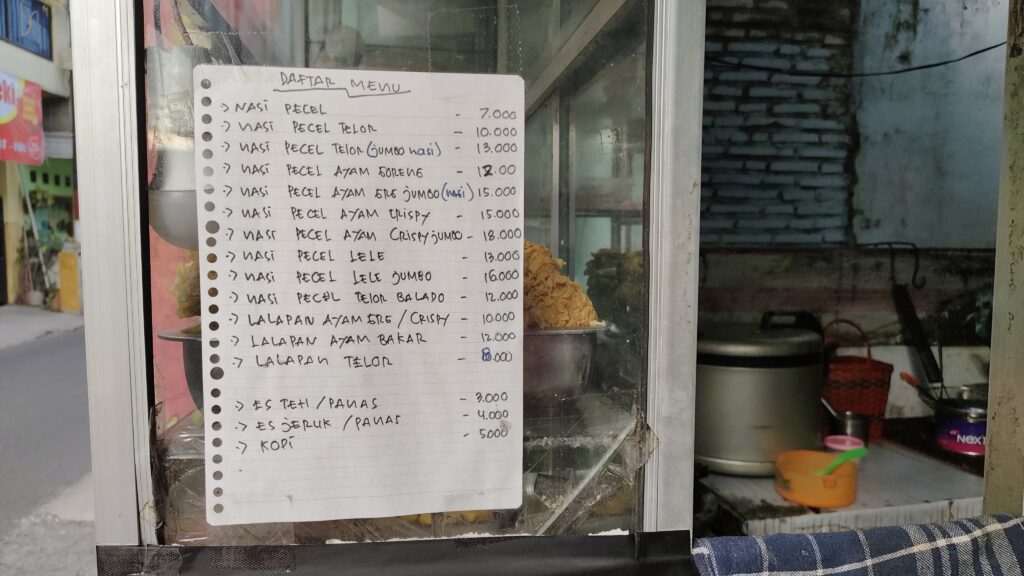 DAFTAR MENU
-> NASI PECEL - 7.000
-> NASI PECEL TELOR - 10.000
-> NASI PECEL TELOR (JUMBO nasi) - 13.000
-> NASI PECEL AYAM GORENG - 12.00
-> NASI PECEL AYAM GRG JUMBO (nasi) 15.000
-> NASI PECEL AYAM CRISPY - 15.000
-> NASI PECEL AYAM CRISPY JUMBO - 18.000
-> NASI PECEL LELE - 13.000
-> NASI PECEL LELE JUMBO - 16.000
-> NASI PECEL TELOR BALADO - 12.000
-> LALAPAN AYAM GRG / CRISPY - 10.000
-> LALAPAN AYAM BAKAR - 12.000
-> LALAPAN TELOR - 8.000
-> ES TEH / PANAS - 3.000
-> ES JERUK / PANAS - 4.000
-> KOPI - 5000
NEXT